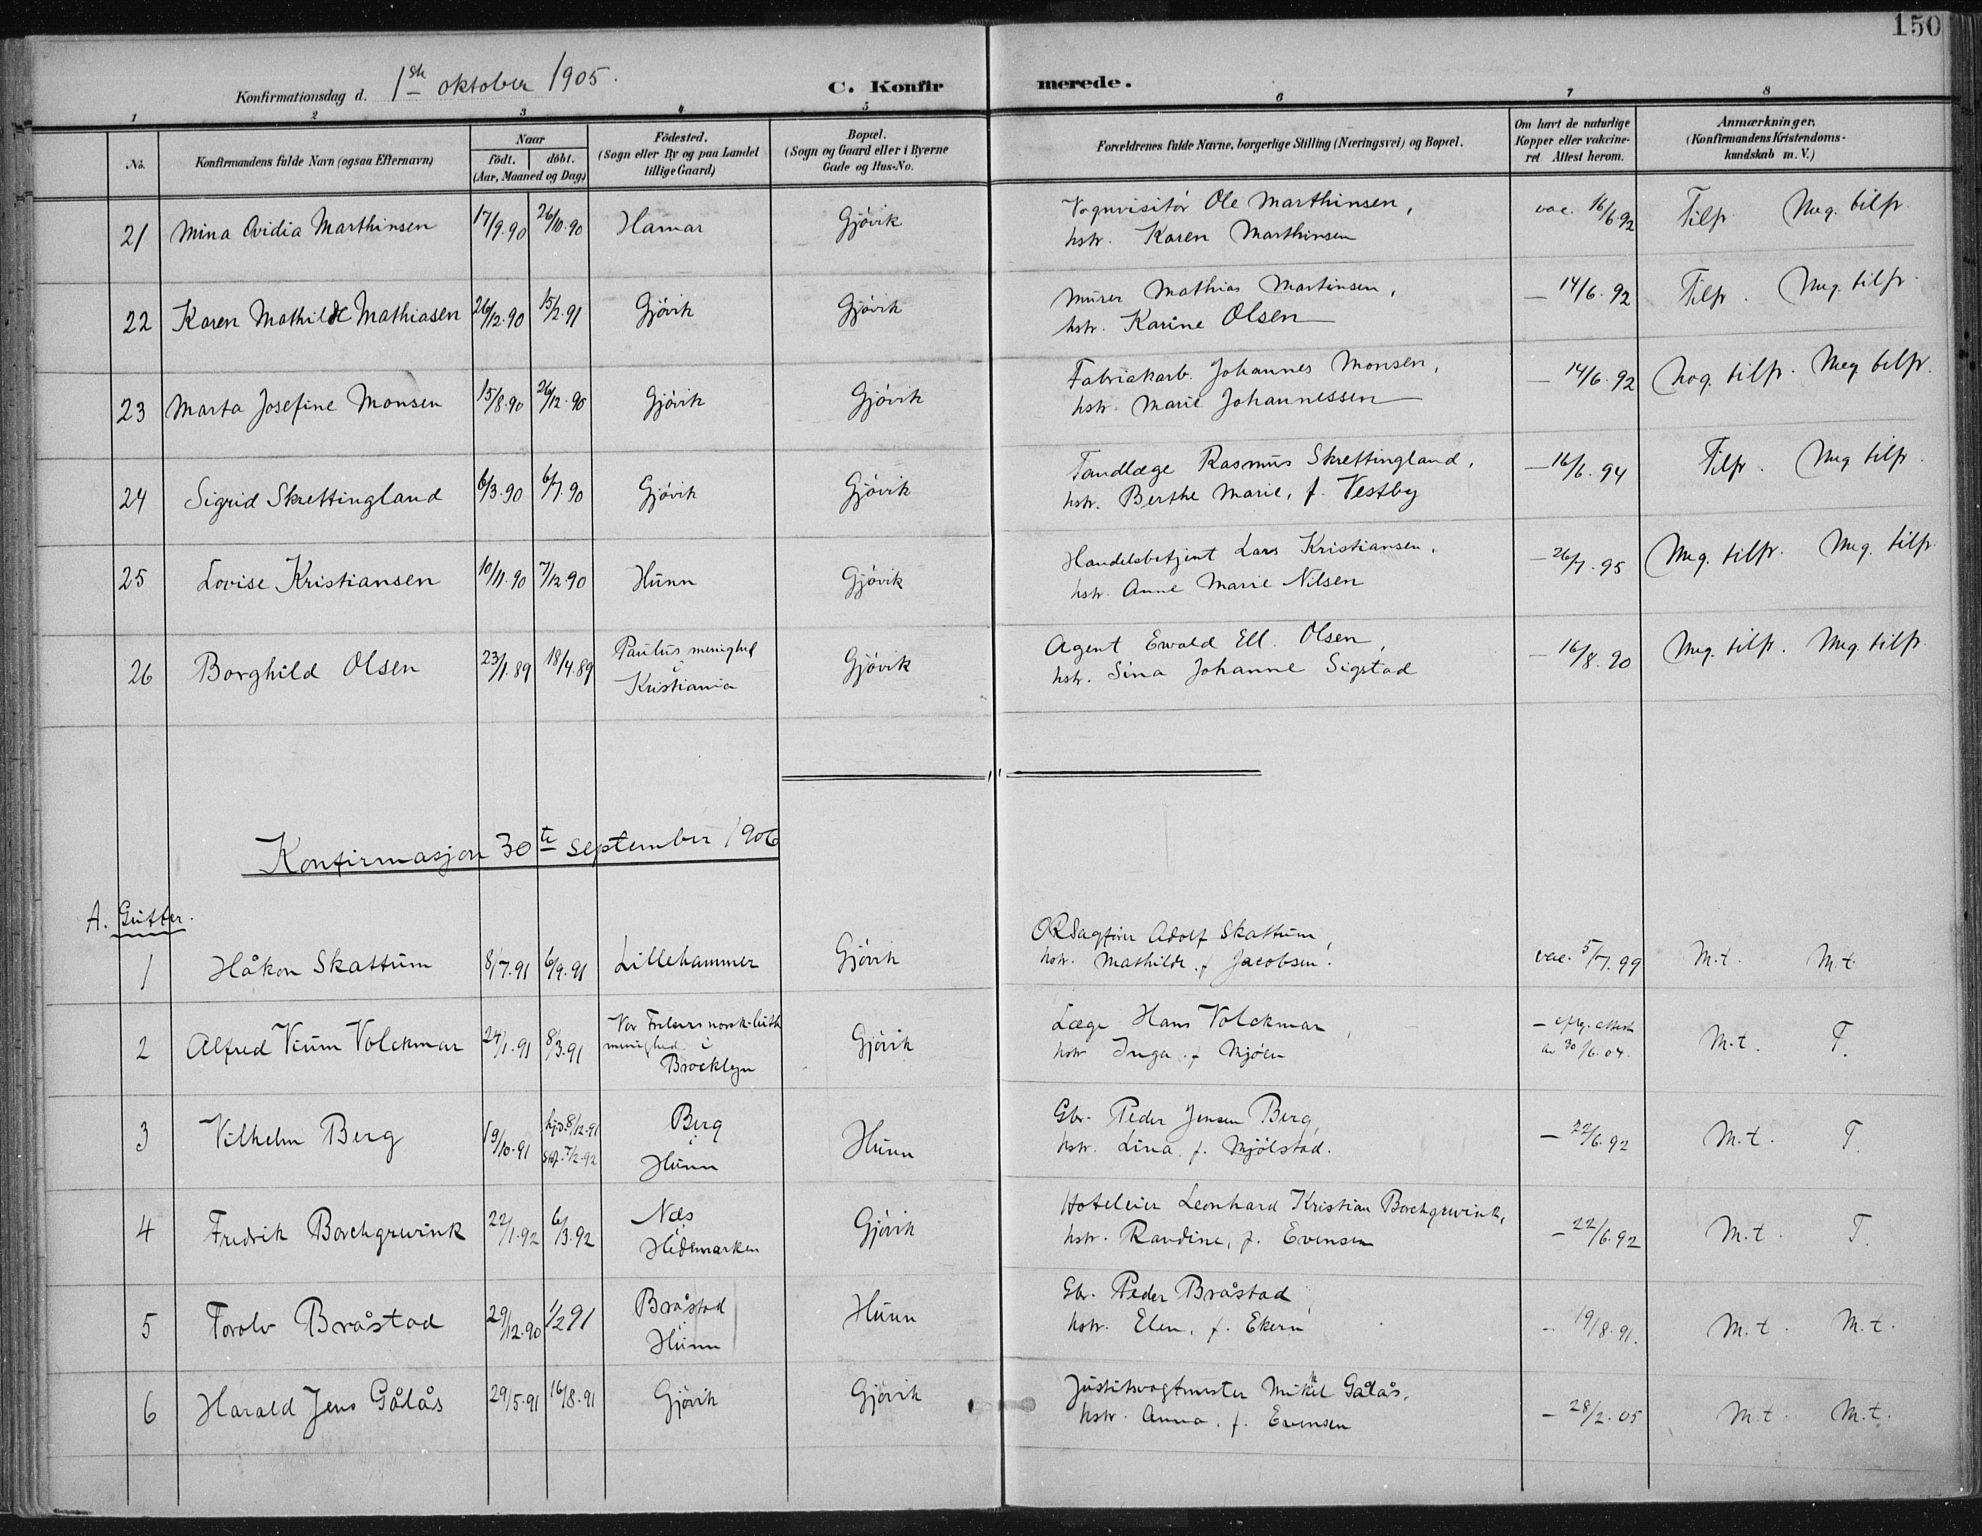 150
Konfirmationsdag d. 1ste oktober 1905.
C. Konfirmerede.
1 2 3 4 5 6 7 8
No.
Konfirmandens fulde Navn (ogsaa Efternavn)
Naar
födt. döbt.
(Aar, Maaned og Dag)
Födested.
(Sogn eller By og paa Landet
tillige Gaard)
Bopæl.
(Sogn og Gaard eller i Byerne
Gade og Hus-No.
Forældrenes fulde Navne, borgerlige Stilling (Næringsvei) og Bopæl.
Om havt de naturlige
Kopper eller vakcine-
ret Attest herom.
Anmærkninger.
(Konfirmandens Kristendoms-
kundskab m. V.)
21 Mina Ovidia Marthinsen 17/9.90 26/10.90 Hamar Gjövik Vognvisitör Ole Marthinsen, vac. 16/6.92 Tilfr. Meg. tilfr.
hstr. Karen Marthinsen
22 Karen Mathilde Mathiasen 26/12.90 15/2.91 Gjövik Gjövik Murer Mathias Martinsen, — 14/6.92 Tilfr. Meg. tilfr.
hstr. Karine Olsen
23 Marta Josefine Monsen 15/8.90 26/12.90 Gjövik Gjövik Fabriakarb. Johannes Monsen, — 14/6.92 Nog. tilfr. Meg tilfr.
hstr. Marie Johannessen
24 Sigrid Skrettingland 6/3.90 6/7.90 Gjövik Gjövik Tandlæge Rasmus Skrettingland, — 16/6.94 Tilfr. Meg tilfr.
hstr. Berthe Marie, f. Vestby
25 Lovise Kristiansen 10/11.90 7/12.90 Hunn Gjövik Handelsbetjent Lars Kristiansen, — 26/7.95 Meg. tilfr. Meg. tilfr.
hstr. Anne Marie Nilsen
26 Borghild Olsen 23/1.89 18/4.89 Paulus menighed i Kristiania Gjövik Agent Ewald Ell. Olsen, — 16/8.90 Meg. tilfr. Meg. tilfr.
hstr. Sina Johanne Sigstad
Konfirmasjon 30te september 1906
A. Gutter.
1 Håkon Skattum 8/7.91 6/9.91 Lillehammer Gjövik ORSagförer Adolf Skattum, vac. 5/7.99 M.t. M.t.
hstr. Mathilde f. Jacobsen.
2 Alfred Vium Volckmar 24/1.91 8/3.91 Vor Frelsers norsk-luth menighed i Brooklyn Gjövik Læge Hans Volckmar, — eflg. attest av 30/6.04. M.t. T.
hstr Inga f. Mjöen
3 Vilhelm Berg 19/10.91 hjd. 8/12.91 stf. 7/2.92 Berg i Hunn Hunn Gbr. Peder Jensen Berg, — 22/6.92 M.t. T.
hstr. Lina f. Mjölstad.
4 Fredrik Borchgrevink 22/1.92 6/3.92 Næs i Hedemarken Gjövik Hoteleier Leonhard Kristian Borchgrevink, — 22/6.92 M.t. T.
hstr. Randine, f. Evensen
5 Torolv Bråstad 29/12.90 1/2 91 Bråstad i Hunn Hunn Gbr. Peder Bråstad, — 19/8.91. M.t. M.t.
hstr. Elen, f. Ekern
6 Harald Jens Gålås 29/5.91 16/8.91 Gjövik Gjövik Justitsvagtmester Mikkel Gålås, — 28/2.05 M.t. M.t.
hstr. Anna f. Evensen